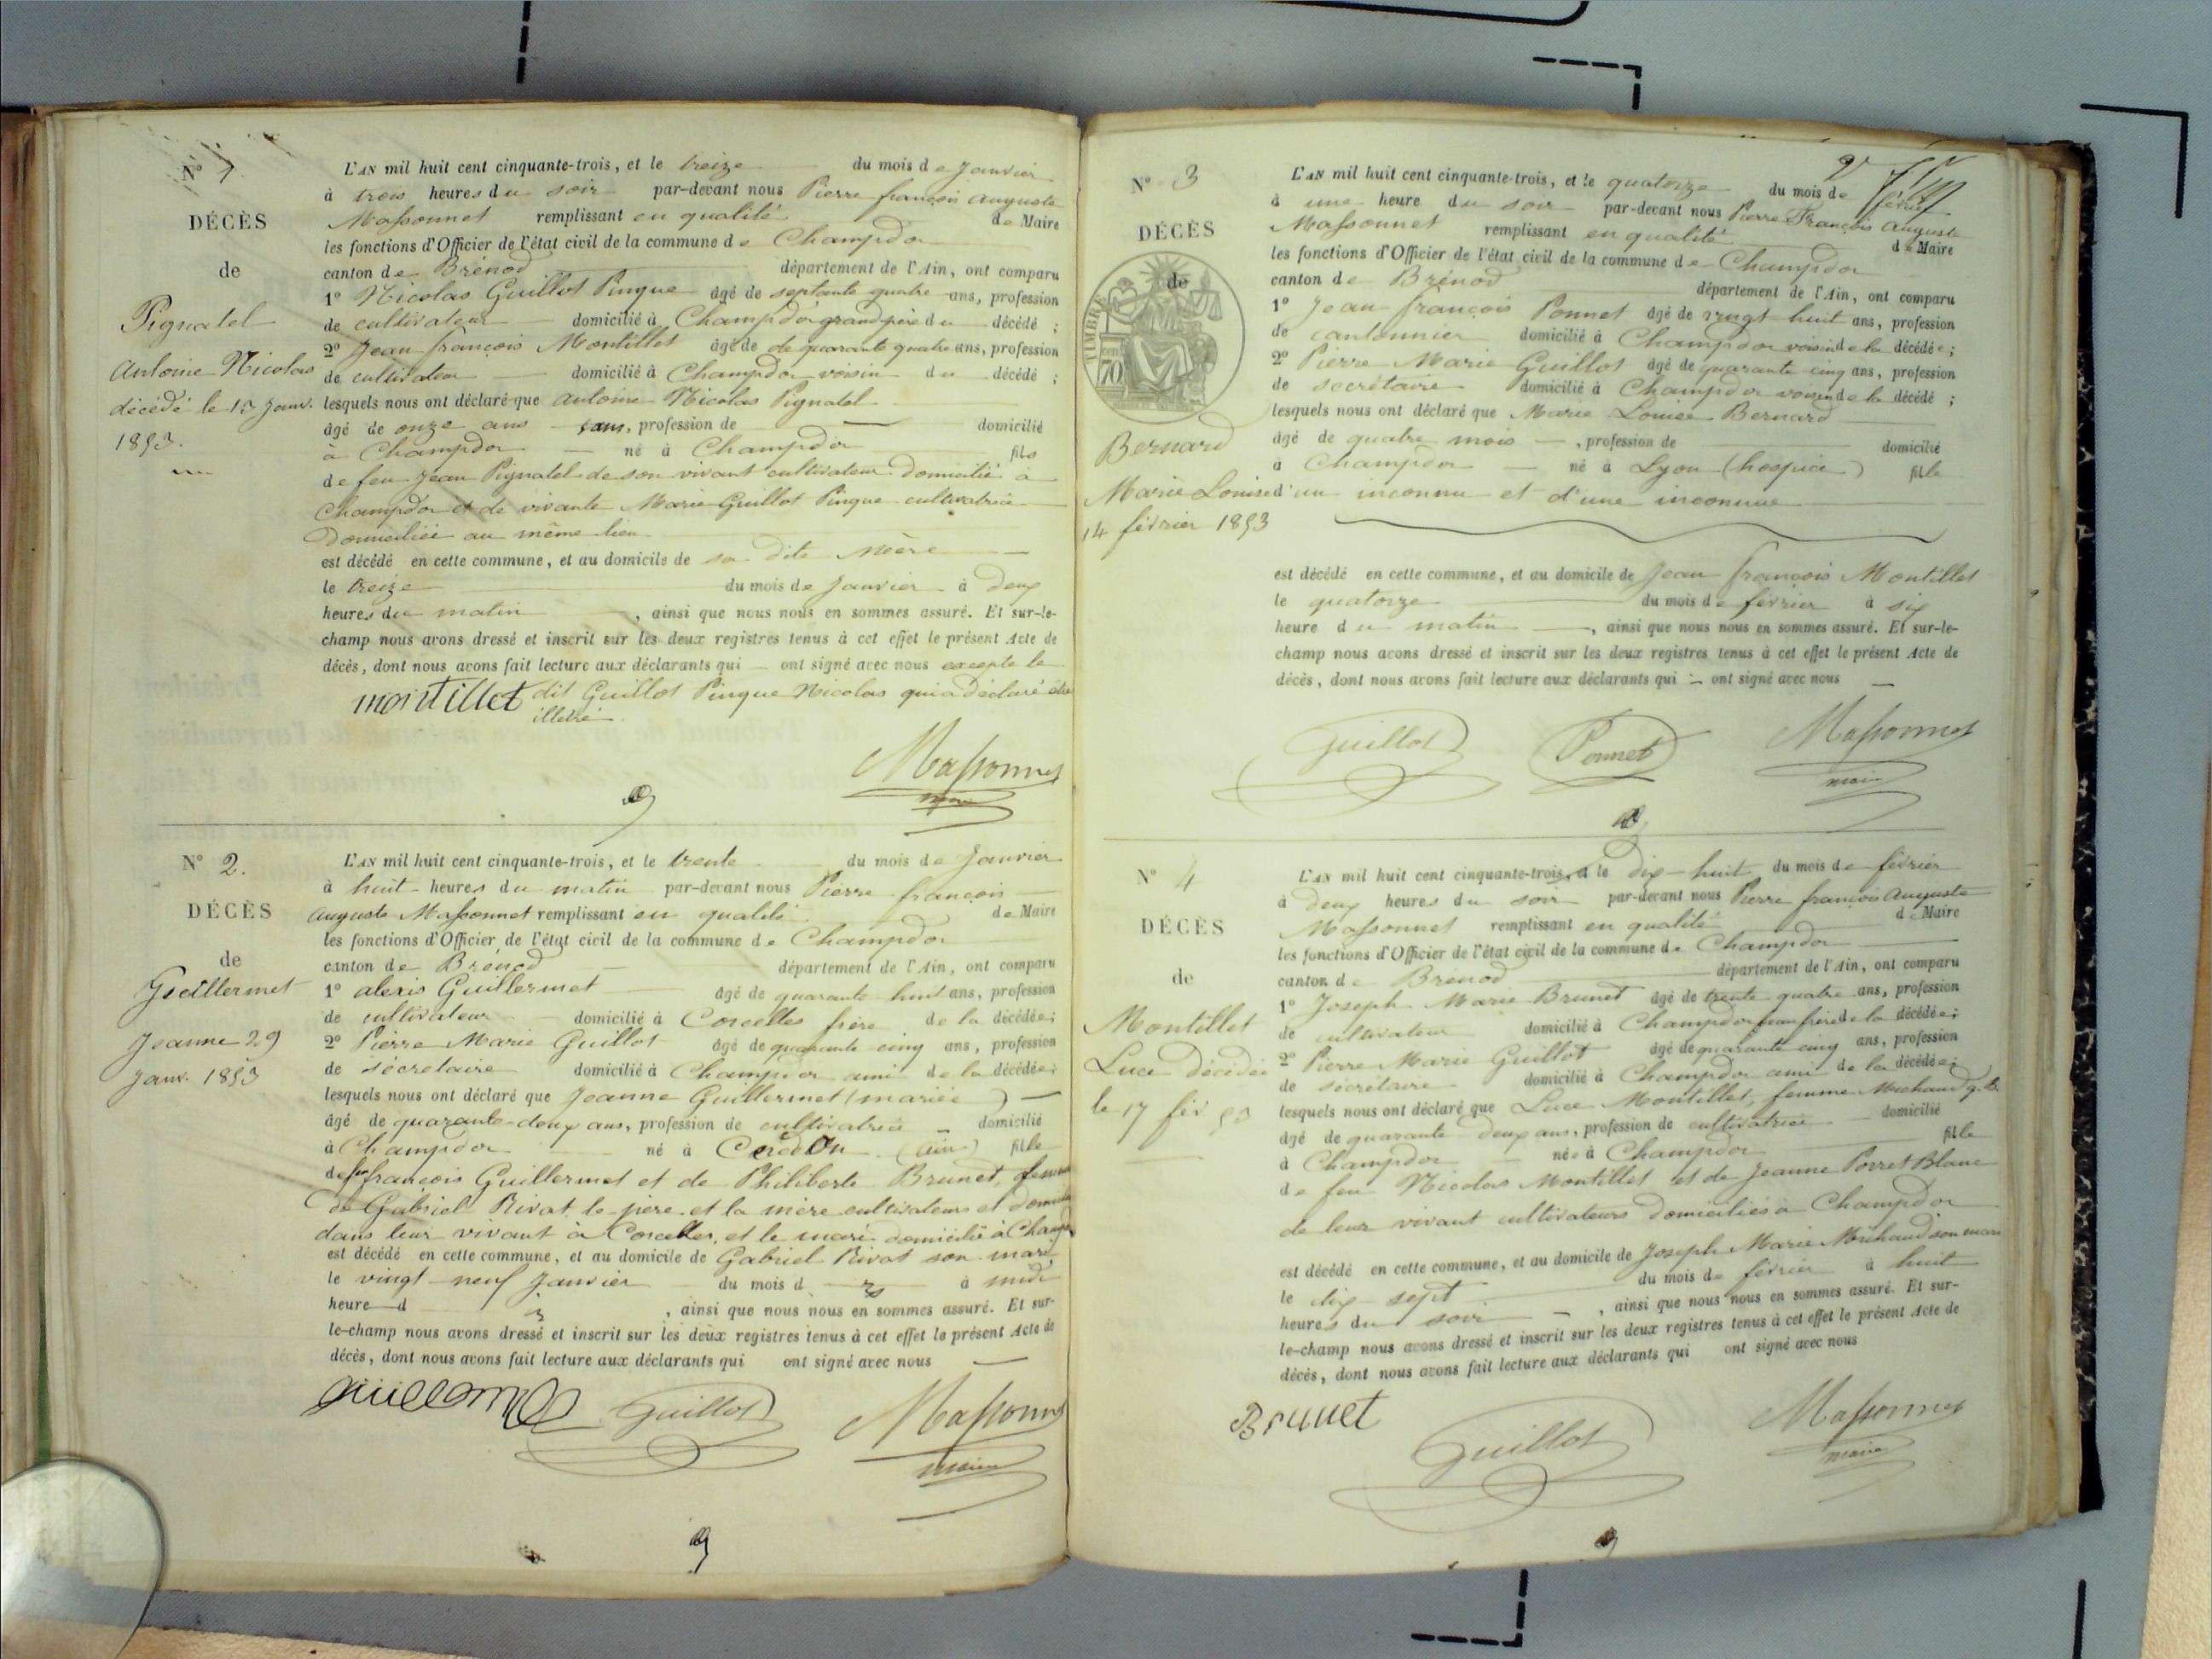 N° 1.
DÉCÈS
de
Pignatel
Antoine Nicolas
décédé le 13 janv.
1853.
L'AN mil huit cent cinquante-trois, et le treize du mois de Janvier
à trois heures du soir par-devant nous Pierre françois auguste
Massonnet remplissant en qualité de Maire
les fonctions d'Officier de l'état civil de la commune de Champdor
canton de Brénod département de l'Ain, ont comparu
1° Nicolas Guillot Pingue âgé de septante quatre ans, profession
de cultivateur domicilié à Champdor grand père du décédé ;
2° Jean françois Montillet âgé de de quarante quatre ans, profession
de cultivateur domicilié à Champdor voisin du décédé ;
lesquels nous ont déclaré que antoine Nicolas Pignatel
âgé de onze ans sans, profession de domicilié
à Champdor né à Champdor fils
de feu Jean Pignatel de son vivant cultivateur domicilié à
Champdor et de vivante Marie Guillot Pingue cultivatrice
Domiciliée au même lieu
est décédé en cette commune, et au domicile de sa dite Mère
le treize du mois de Janvier à deux
heures du matin, ainsi que nous nous en sommes assuré. Et sur-le-
champ nous avons dressé et inscrit sur les deux registres tenus à cet effet le présent Acte de
décès, dont nous avons fait lecture aux déclarants qui ont signé avec nous excepté le
dit Guillot Pingue Nicolas qui a déclaré être
illetré
montillet
Massonnet
maire
N° 2.
DÉCÈS
de
Guillermet
Jeanne 29
janv. 1853
L'AN mil huit cent cinquante-trois, et le trente du mois de Janvier
à huit heures du matin par-devant nous Pierre françois
auguste Massonnet remplissant en qualité de Maire
les fonctions d'Officier de l'état civil de la commune de Champdor
canton de Brénod département de l'Ain, ont comparu
1° alexis Guillermet âgé de quarante huit ans, profession
de cultivateur domicilié à Corcelles frère de la décédée ;
2° Pierre Marie Guillot âgé de quarante cinq ans, profession
de sécretaire domicilié à Champdor ami de la décédée ;
lesquels nous ont déclaré que Jeanne Guillermet (mariée)
âgé de quarante-deux ans, profession de cultivatrice domicilié
à Champdor né à Cerdon (ain) fille
de feu françois Guillermet et de Philiberte Brunet, femme
de Gabriel Rivat le père et la mère cultivateurs et
dans leur vivant à Corcelles, et le mari domicilié à
est décédé en cette commune, et au domicile de Gabriel Rivat son mari
le vingt neuf Janvier du mois d à midi
heure d, ainsi que nous nous en sommes assuré. Et sur-
le-champ nous avons dressé et inscrit sur les deux registres tenus à cet effet le présent Acte de
décès, dont nous avons fait lecture aux déclarants qui ont signé avec nous
Guillot
Massonnet
maire
N° 3
DÉCÈS
de
TIMBRE
70
Bernard
Marie Louise
14 février 1853
L'AN mil huit cent cinquante-trois, et le quatorze du mois de février
à une heure du soir par-devant nous Pierre François Auguste
Massonnet remplissant en qualité de Maire
les fonctions d'Officier de l'état civil de la commune de Champdor
canton de Brénod département de l'Ain, ont comparu
1° Jean françois Ponnet âgé de vingt huit ans, profession
de cantonnier domicilié à Champdor voisin de la décédée ;
2° Pierre Marie Guillot âgé de quarante cinq ans, profession
de secrétaire domicilié à Champdor voisin de la décédé ;
lesquels nous ont déclaré que Marie Louise Bernard
âgé de quatre mois, profession de domicilié
à Champdor né à Lyon (hospice) fille
d'un inconnu et d'une inconnue
est décédé en cette commune, et au domicile de Jean françois Montillet
le quatorze du mois de février à six
heure du matin, ainsi que nous nous en sommes assuré. Et sur-le-
champ nous avons dressé et inscrit sur les deux registres tenus à cet effet le présent Acte de
décès, dont nous avons fait lecture aux déclarants qui ont signé avec nous
Guillot
Ponnet
Massonnet
maire
N° 4
DÉCÈS
de
Montillet
Luce décédée
le 17 fév 53
L'AN mil huit cent cinquante-trois, et le dix-huit du mois de février
à deux heures du soir par-devant nous Pierre françois Auguste
Massonnet remplissant en qualité de Maire
les fonctions d'Officier de l'état civil de la commune de Champdor
canton de Brénod département de l'Ain, ont comparu
1° Joseph Marie Brunet âgé de trente quatre ans, profession
de cultivateur domicilié à Champdor beau frère de la décédée ;
2° Pierre Marie Guillot âgé de quarante cinq ans, profession
de sécrétaire domicilié à Champdor ami de la décédée ;
lesquels nous ont déclaré que Luce Montillet, femme Michaud
âgé de quarante deux ans, profession de cultivatrice domicilié
à Champdor née à Champdor fille
de feu Nicolas Montillet et de Jeanne Poncet Blanc
de leur vivant cultivateurs domiciliés à Champdor
est décédé en cette commune, et au domicile de Joseph Marie Michaud son mari
le dix sept du mois de février à huit
heures du soir, ainsi que nous nous en sommes assuré. Et sur-
le-champ nous avons dressé et inscrit sur les deux registres tenus à cet effet le présent Acte de
décès, dont nous avons fait lecture aux déclarants qui ont signé avec nous
Brunet
Guillot
Massonnet
maire